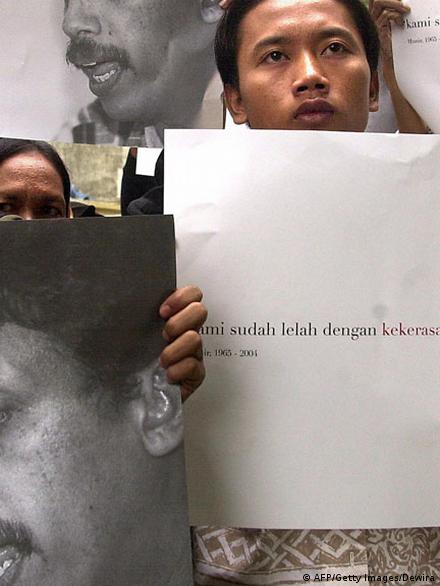 "kami s
Munir, 1965 -
ami sudah lelah dengan kekerasa
ir, 1965 - 2004
© AFP/Getty Images/Dewira